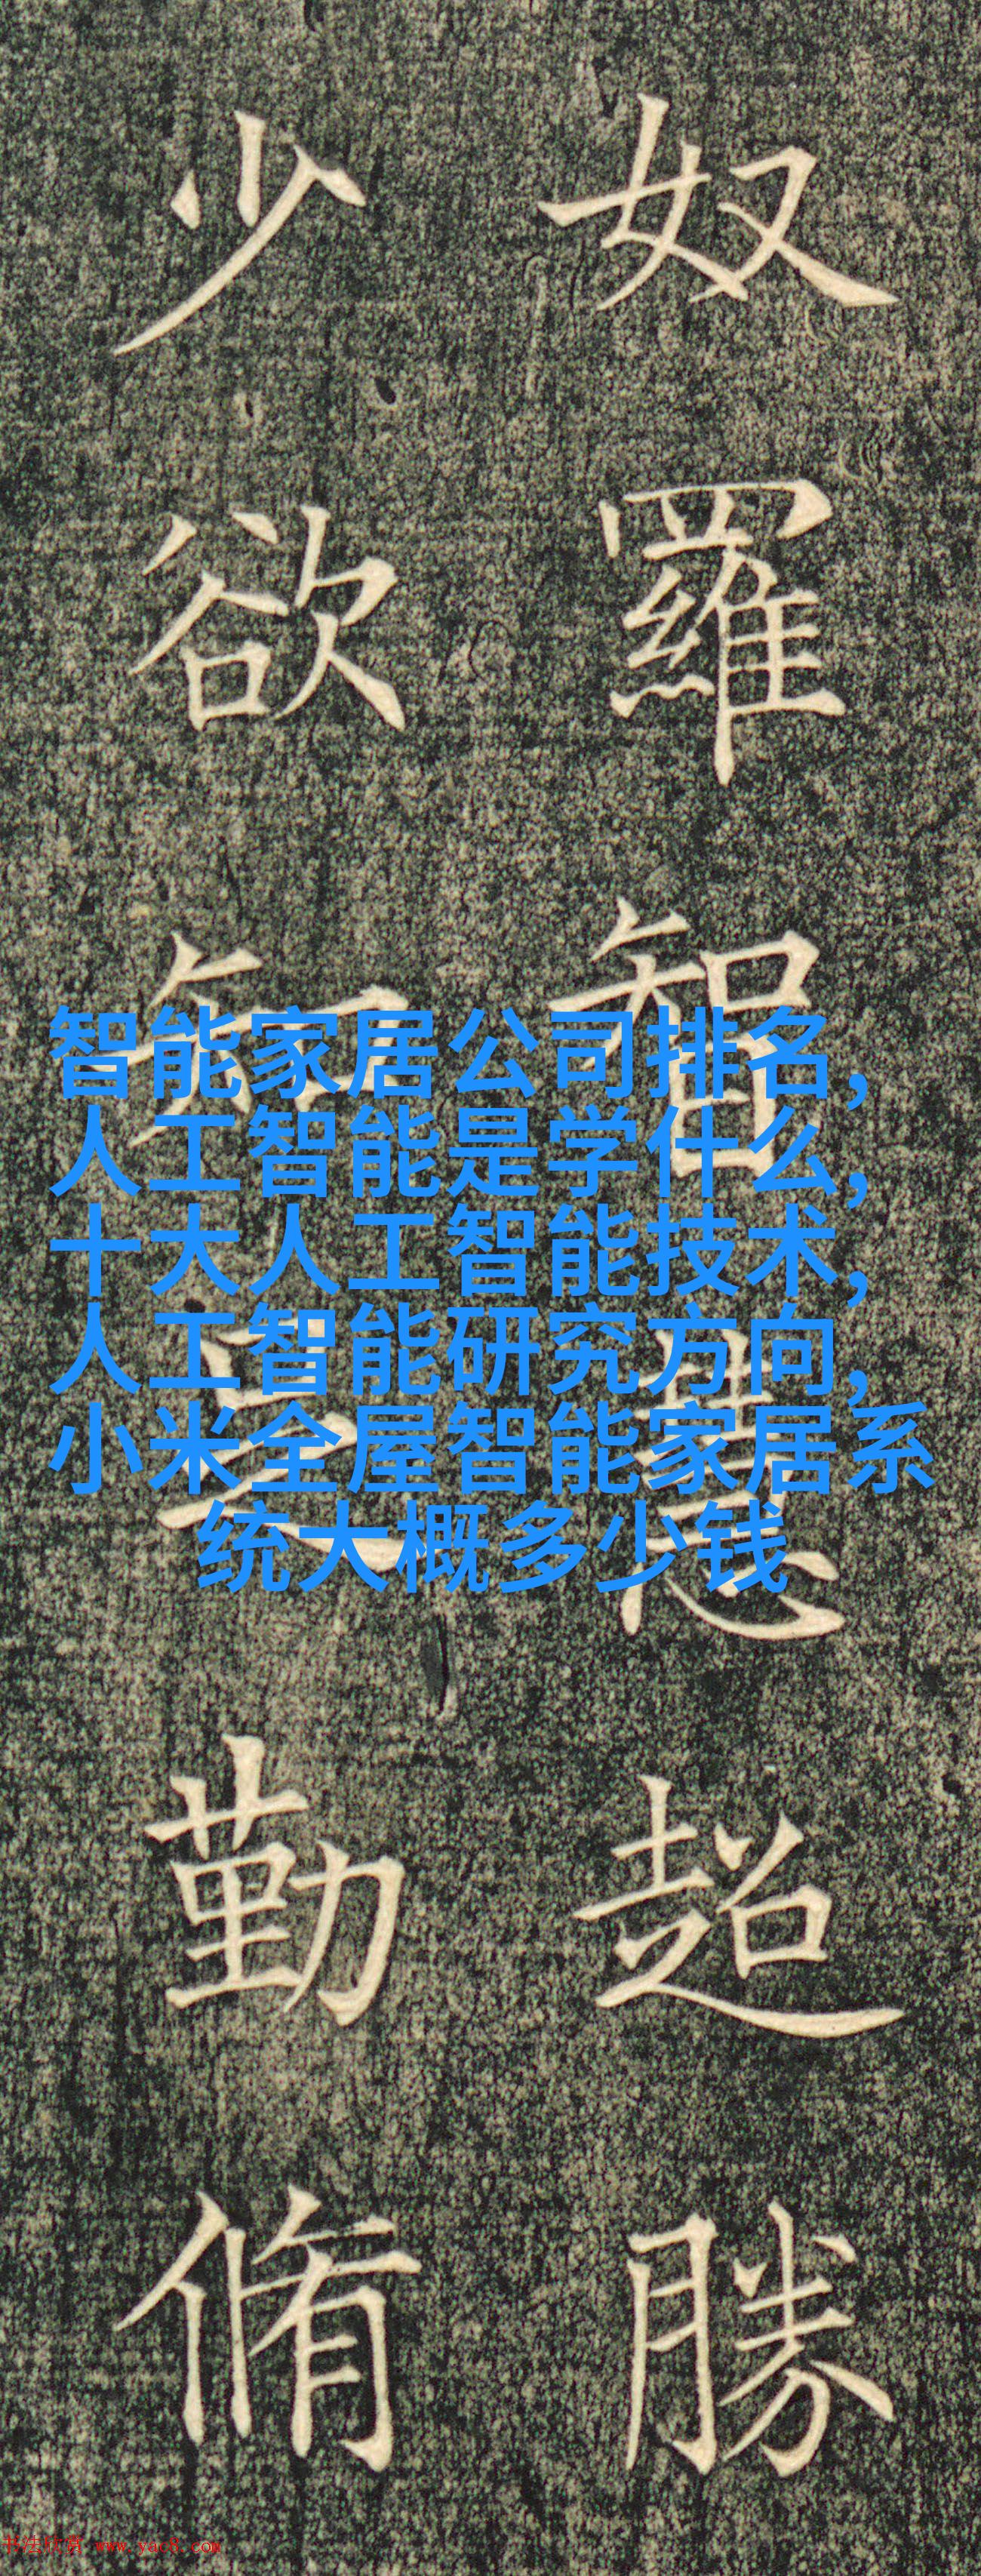 奴羅智慧超勝
少欲知足勤脩
智能家居公司排名,
人工智能是学什么,
十大人工智能技术,
人工智能研究方向,
小米全屋智能家居系
统大概多少钱
书法欣赏 www.yac8.com